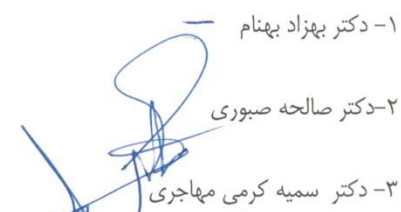 ۱- دکتر بهزاد بهنام
۲-دکتر صالحه صبوری
۳- دکتر سمیه کرمی مهاجری